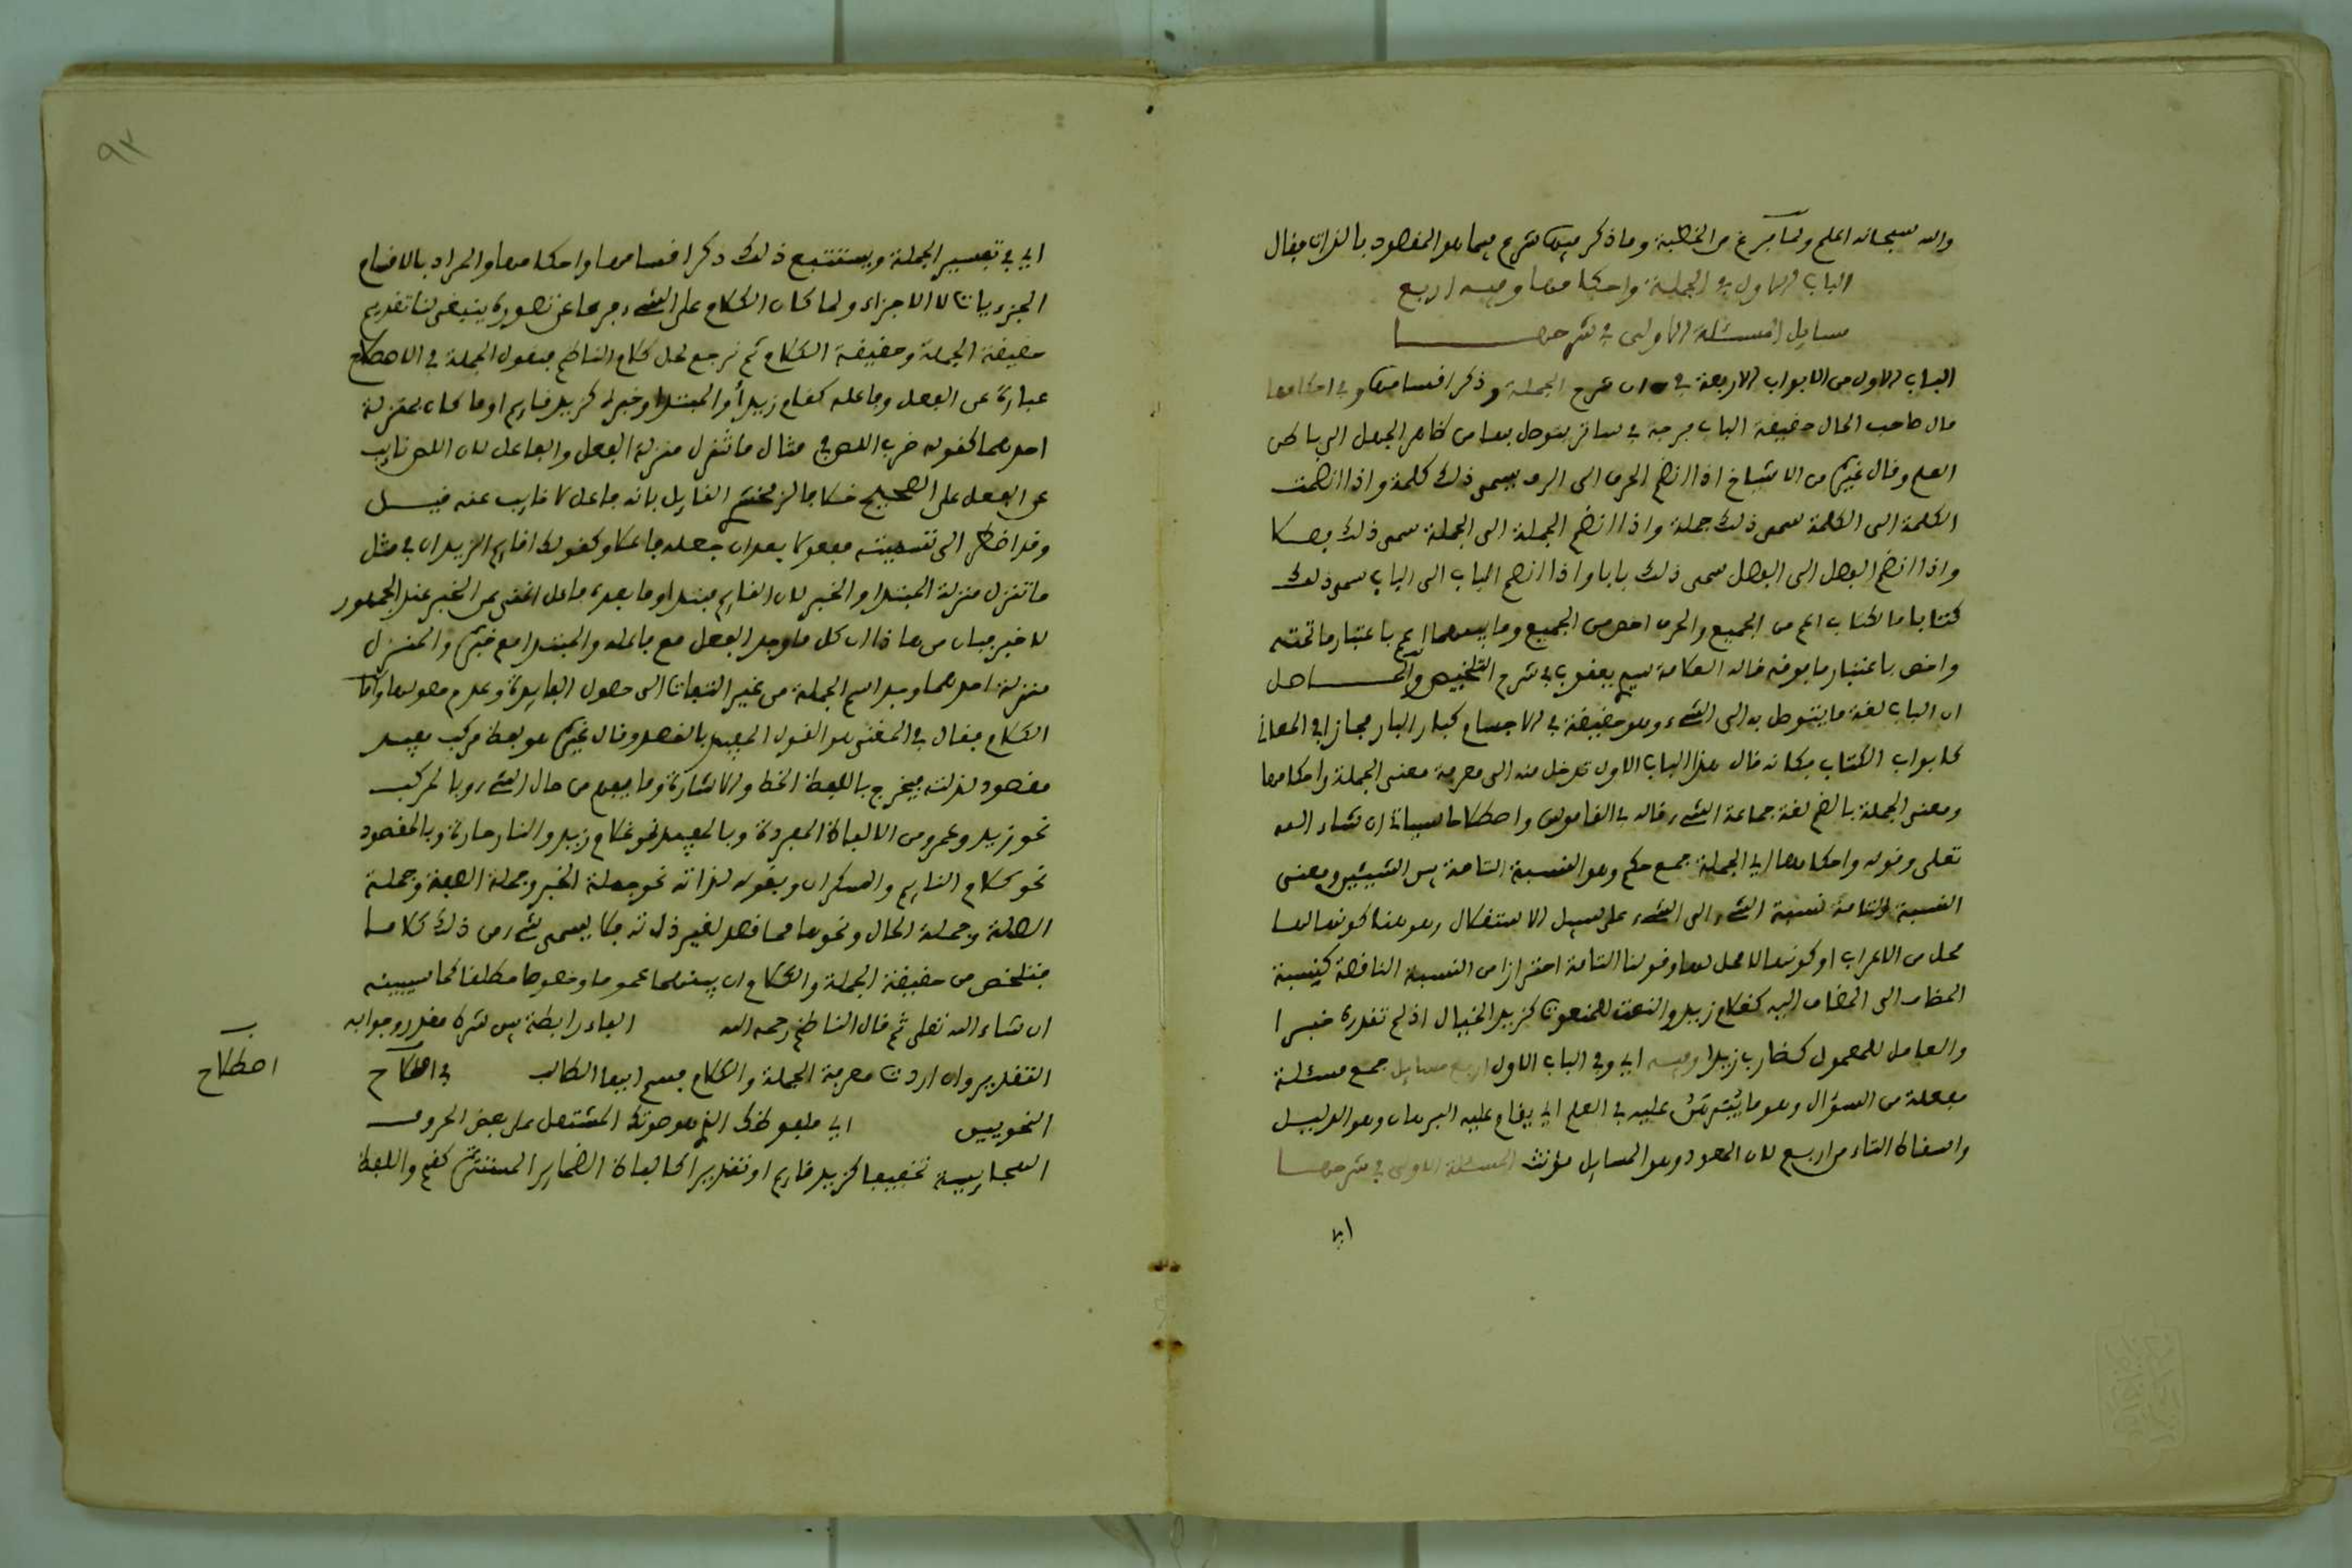 والله سبحانه اعلم ولما فرغ من الخطبة وما ذكر فيها شرع فيما هو المقصود بالذات فقال
الباب الاول في الجملة واحكامها وفيه اربع
مسايل المسئلة الاولى في شرحها
الباب الاول من الابواب الاربعة في شرح الجملة وذكر اقسامها وفي احكامها
قال صاحب الحال حقيقة الباب فرجة في ساتر يتوصل بها من ظاهر الجهل الى باطن
العلم وقال غيره من الاشياخ اذا انضم الحرف الى الحرف يسمى ذلك كلمة واذا انضمت
الكلمة الى الكلمة سمى ذلك جملة واذا انضم الجملة الى الجملة سمى ذلك فصلا
واذا انضم الفصل الى الفصل سمى ذلك بابا واذا انضم الباب الى الباب سمى ذلك
كتابا فالكتاب اعم من الجميع والحرف اخص من الجميع وما بينهما اعم باعتبار ما تحته
واخص باعتبار ما فوقه قاله العلامة سيم يعقوب في شرح التلخيص والحاصل
ان الباب لغة ما يتوصل به الى الشيء وهو حقيقة في الاجسام كباب الدار مجاز في المعاني
كابواب الكتاب فكانه قال هذا الباب الاول تدخل منه الى معرفة معنى الجملة واحكامها
ومعنى الجملة بالضم لغة جماعة الشيء قاله في القاموس واصطلاحا سياتي ان شاء الله
تعلى وقوله واحكامها اي الجملة جمع حكم وهو النسبة التامة بين الشيئين ومعنى
النسبة التامة نسبة الشيء الى الشيء على سبيل الاستقلال وهو هنا كونها لها
محل من الاعراب او كونها لا محل لها وقولنا التامة احترازا من النسبة الناقصة كنسبة
المضاف الى المضاف اليه كغلام زيد والنعت للمنعوت كزيد الخيال اذ لم تقدره خبرا
والعامل للمعمول كضارب زيدا وفيه اي وفي الباب الاول اربع مسايل جمع مسئلة
مفعلة من السؤال وهو ما يبرهن عليه في العلم اي يقام عليه البرهان وهو الدليل
واسقاط التاء من اربع لان المعدود وهو المسايل مؤنث المسئلة الاولى في شرحها
اي
٩٢
اي في تفسير الجملة ويستتبع ذلك ذكر اقسامها واحكامها والمراد بالاقسام
الجزءيات لا الاجزاء ولما كان الكلام على الشيء فرعا عن تصوره ينبغي لنا تقديم
حقيقة الجملة وحقيقة الكلام ثم نرجع لحل كلام الناظم فنقول الجملة في الاصطلاح
عبارة عن الفعل وفاعله كقام زيد أو المبتدا وخبره كزيد قايم او ما كان بمنزلة
احدهما كقوله ضرب اللص في مثال ما تنزل منزلة الفعل والفاعل لان اللص نايب
عن الفعل على الصحيح خلافا لزمخشري القايل بانه فاعل لا نايب عنه قيل
وقد اضطر الى تسميته مفعولا بعد ان جعله فاعلا وكقولك اقايم الزيدان في مثل
ما تنزل منزلة المبتدا والخبر لان القايم مبتدا وما بعده فاعل اغنى عن الخبر عند الجمهور
لا خبر فبان من هاذا ان كل ما وجد الفعل مع فاعله والمبتدا مع خبره والمنزل
منزلة احدهما وجد اسم الجملة من غير التفات الى حصول الفايدة وعدم حصولها واما
الكلام فقال في المغنى هو القول المفيد بالقصد وقال غيره هو لفظ مركب مفيد
مقصود لذاته فيخرج باللفظ الخط والاشارة وما يفهم من حال الشيء وبالمركب
نحو زيد وعمرو من الالفاظ المفردة وبالمفيد نحو غلام زيد والنار حارة وبالمقصود
نحو كلام النايم والسكران وبقوله لذاته نحو جملة الخبر وجملة الصفة وجملة
الصلة وجملة الحال ونحوها مما قصد لغير ذاته فلا يسمى شيء من ذلك كلاما
فتلخص من حقيقة الجملة والكلام ان بينهما عموما وخصوصا مطلقا كما سيبينه
ان شاء الله تعلى ثم قال الناظم رحمه الله الفاء رابطة بين شرط مقدر وجوابه
التقدير وان اردت معرفة الجملة والكلام فسم ايها الطالب في اصطلاح
اصطلاح
النحويين اي ملفوظك الذي هو صوتك المشتمل على بعض الحروف
الهجاييية تحقيقا كزيد قايم او تقديرا كالفاظ الضماير المستترة كقم واللفظ